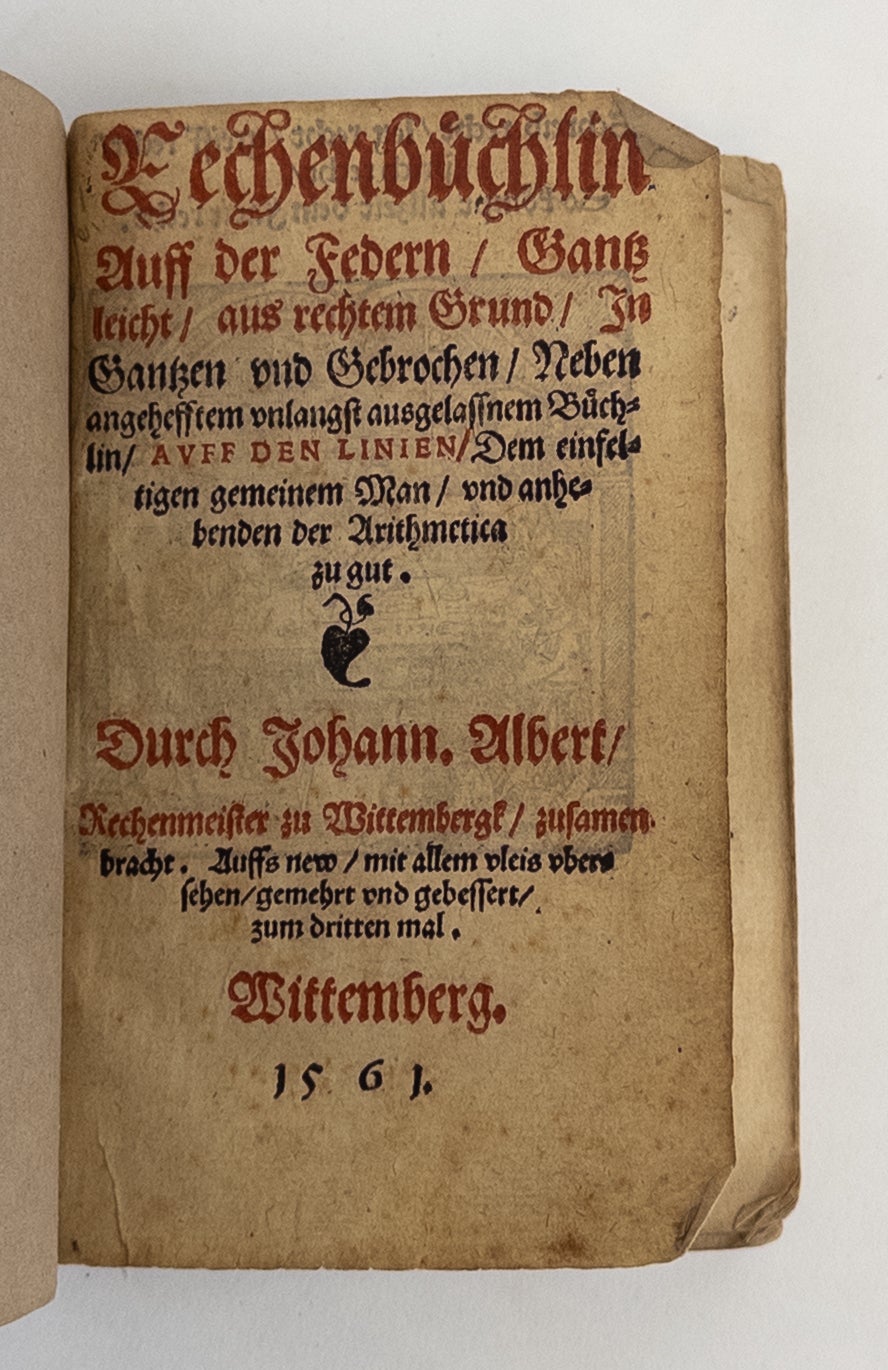 Rechenbůchlin
Auff der Federn / Gantz
leicht / aus rechtem Grund / In
Gantzen vnd Gebrochen / Neben
angehefftem vnlangst ausgelassnem Bůch-
lin / AVFF DEN LINIEN / Dem einfel-
tigen gemeinem Man / vnd anhe-
benden der Arithmetica
zu gut.
Durch Johann. Albert /
Rechenmeister zu Wittembergk / zusamen
bracht. Auffs new / mit allem vleis vber-
sehen / gemehrt vnd gebessert /
zum dritten mal.
Wittemberg.
1561.